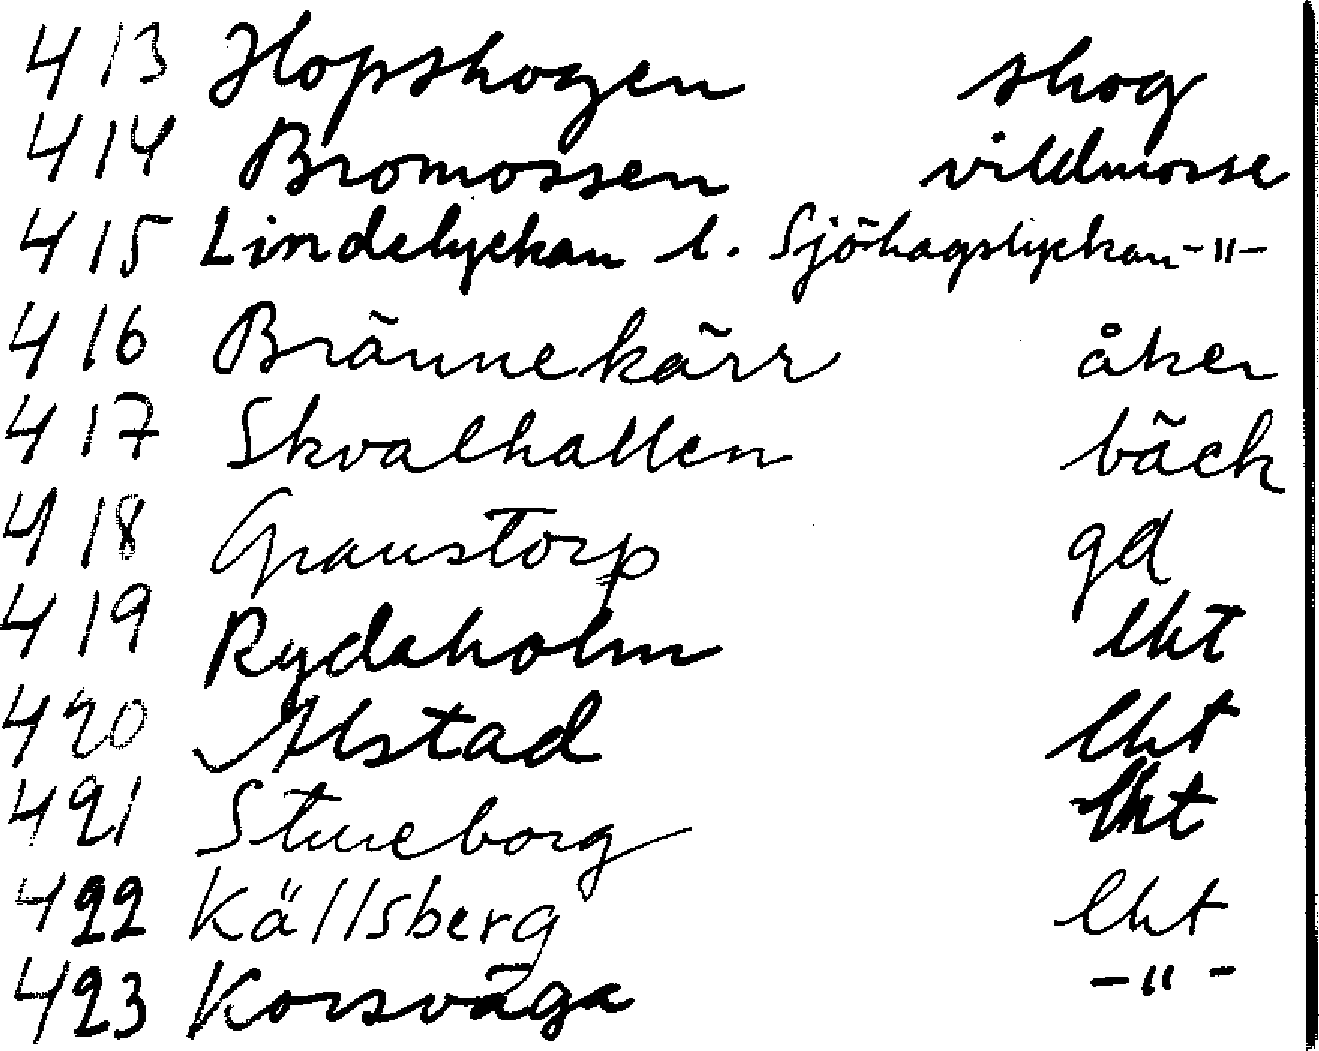 413 Hopskogen skog
414 Bromossen vildmosse
415 Lindelyckan l. Sjöhagslyckan -"-
416 Brännekärr åker
417 Skvalhallen bäck
418 Graustorp gd
419 Rydaholm lht
420 Alstad lht
421 Stureborg lht
422 Källsberg lht
423 Korsväga -"-